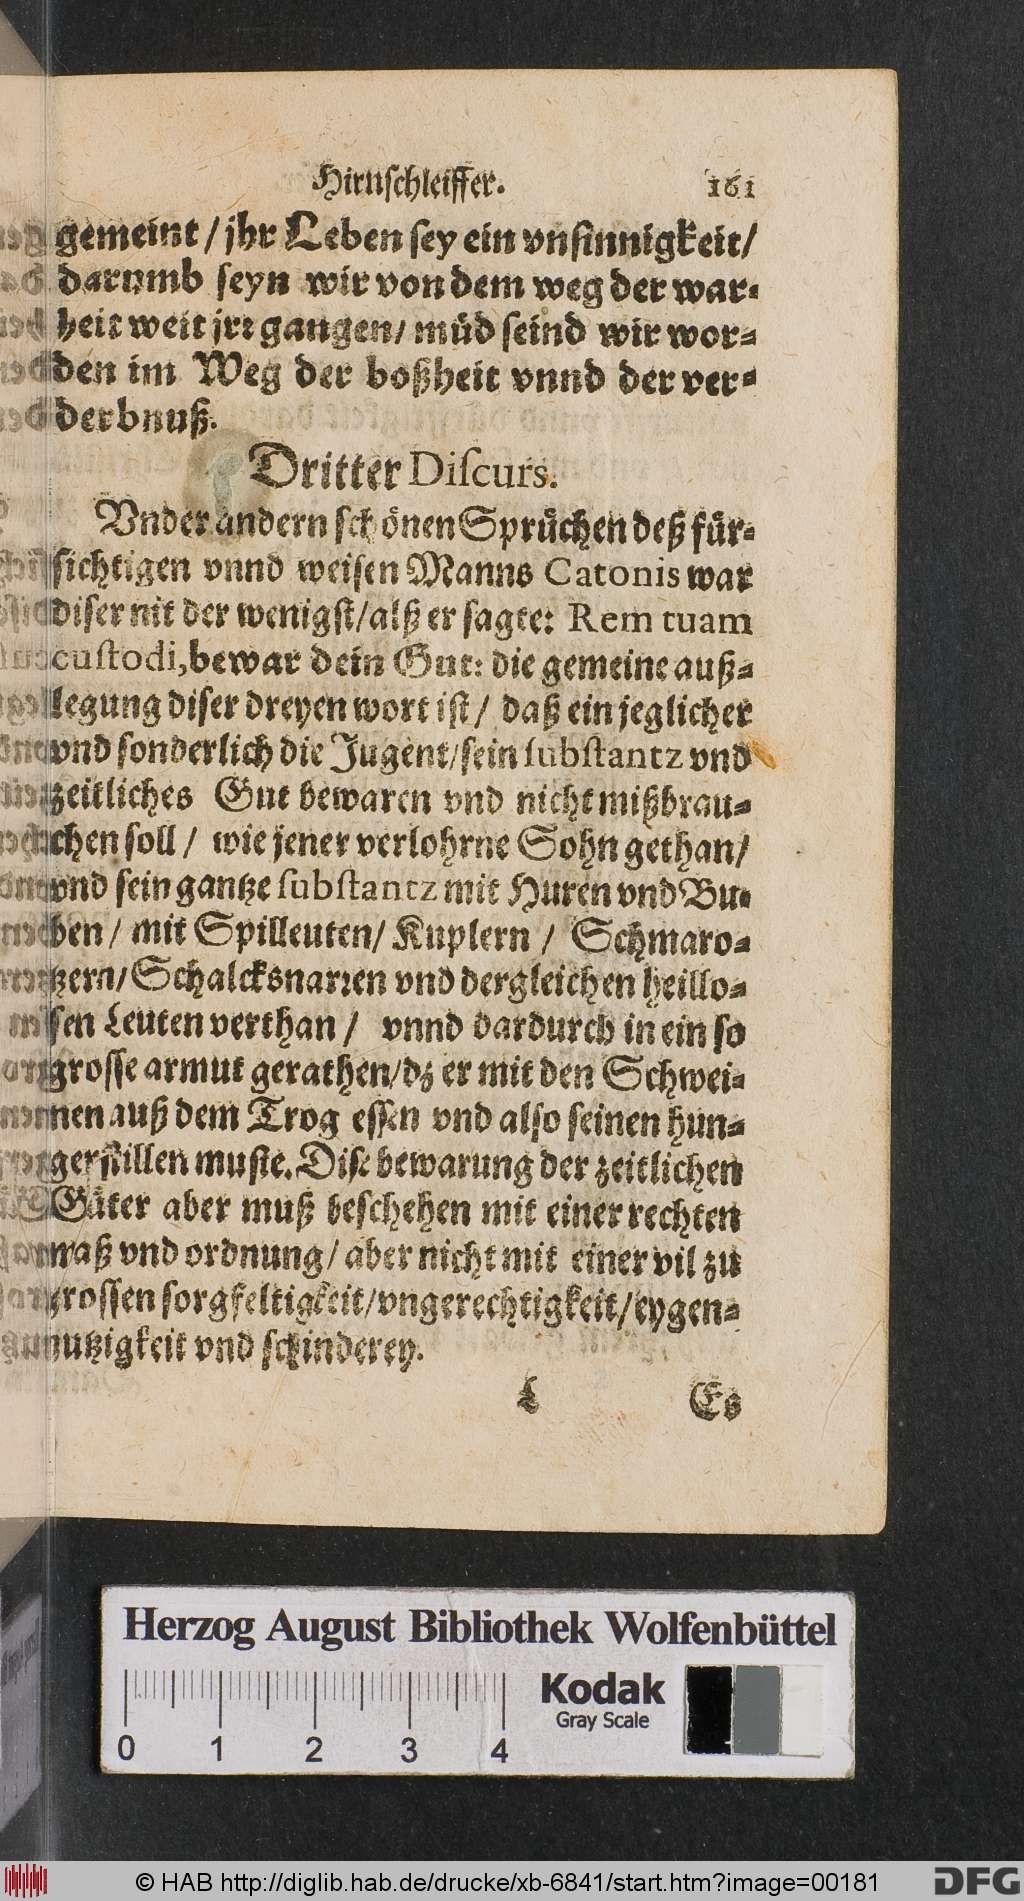 Hirnschleiffer. 161
gemeint / jhr Leben sey ein vnsinnigkeit /
darumb seyn wir von dem weg der war-
heit weit jrr gangen / müd seind wir wor-
den im Weg der boßheit vnnd der ver-
derbnuß.
Dritter Discurs.
Vnder andern schönen Sprüchen deß für-
sichtigen vnnd weisen Manns Catonis war
diser nit der wenigst / alß er sagte: Rem tuam
custodi, bewar dein Gut: die gemeine auß-
legung diser dreyen wort ist / daß ein jeglicher
vnd sonderlich die Jugent / sein substantz vnd
zeitliches Gut bewaren vnd nicht mißbrau-
chen soll / wie jener verlohrne Sohn gethan /
vnd sein gantze substantz mit Huren vnd Bu-
ben / mit Spilleuten / Kuplern / Schmaro-
tzern / Schalcksnarren vnd dergleichen heillo-
sen Leuten verthan / vnnd dardurch in ein so
grosse armut gerathen / dz er mit den Schwei-
nen auß dem Trog essen vnd also seinen hun-
ger stillen muste. Dise bewarung der zeitlichen
Güter aber muß beschehen mit einer rechten
maß vnd ordnung / aber nicht mit einer vil zu
grossen sorgfeltigkeit / vngerechtigkeit / eygen-
nutzigkeit vnd schinderey.
L Es
Herzog August Bibliothek Wolfenbüttel
Kodak
Gray Scale
0 1 2 3 4
© HAB http://diglib.hab.de/drucke/xb-6841/start.htm?image=00181
DFG